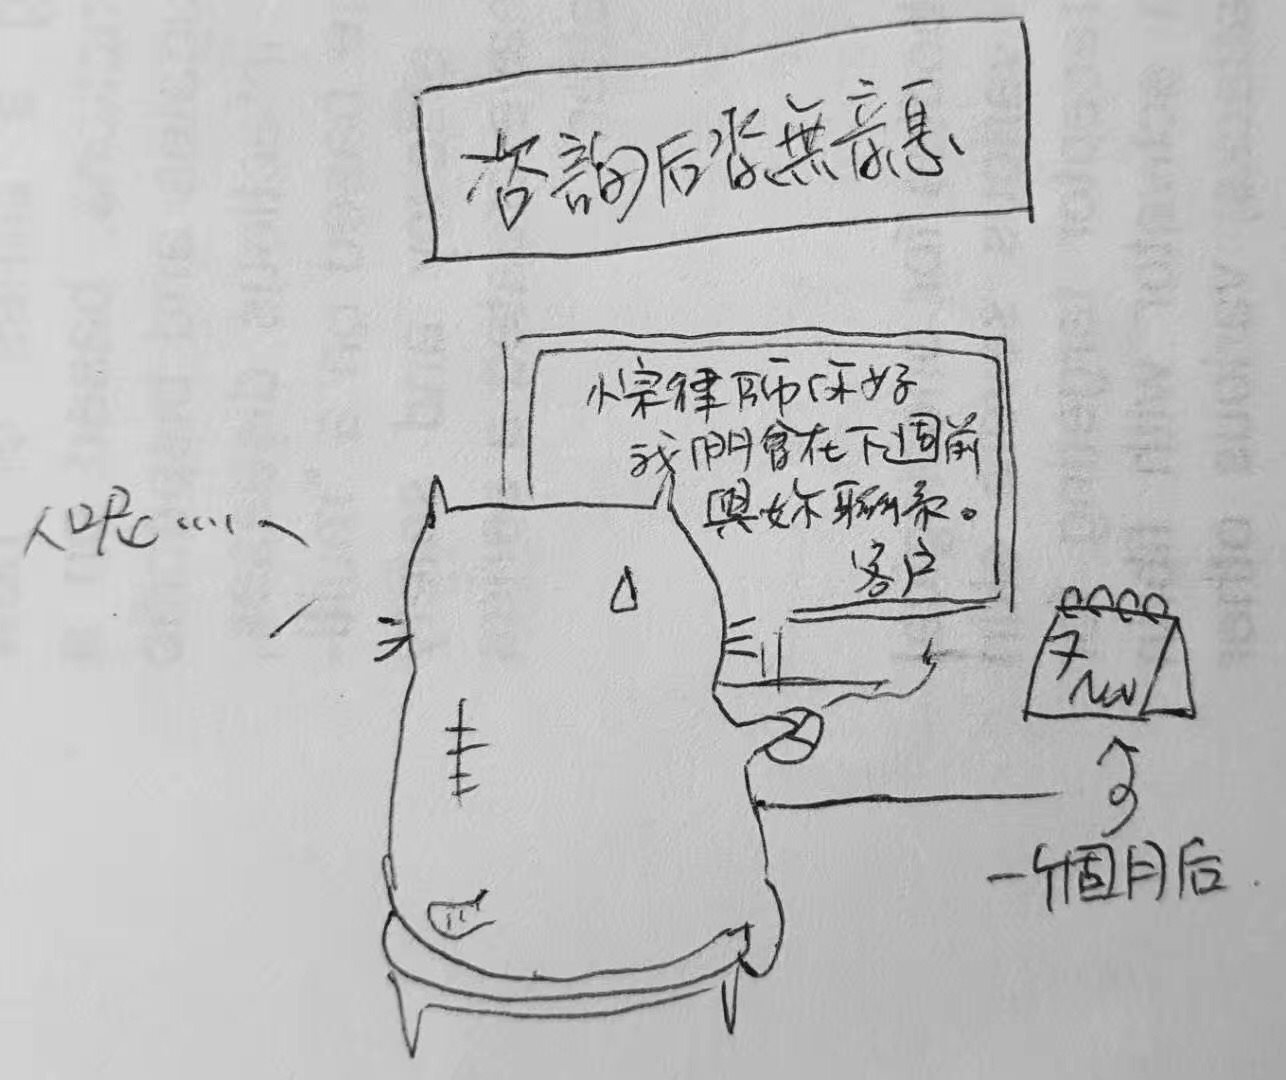 咨詢后沓無音息
小宗律師你好
我們會在下週前
與妳聯系。
客户
人呢……
7
Nov
一個月后